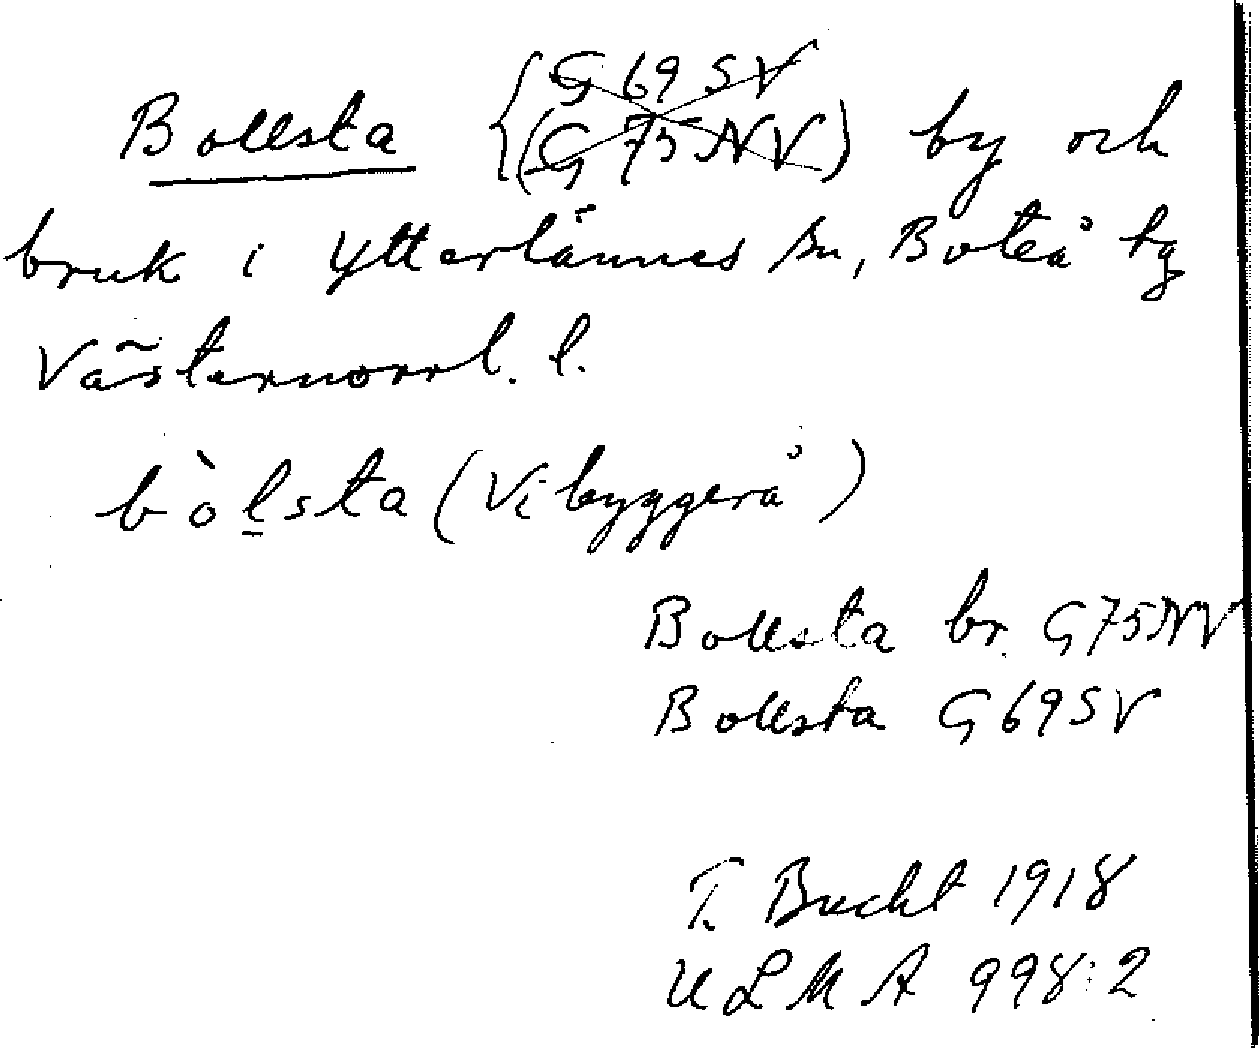 Bollsta {G 69 SV
(G 75 NV) by och
bruk i Ytterlännes sn, Boteå tg
Västernorrl. l.
bòl̠sta (Vibyggerå)
Bollsta br. G75NV
Bollsta G69SV
T. Bucht 1918
ULMA 998:2